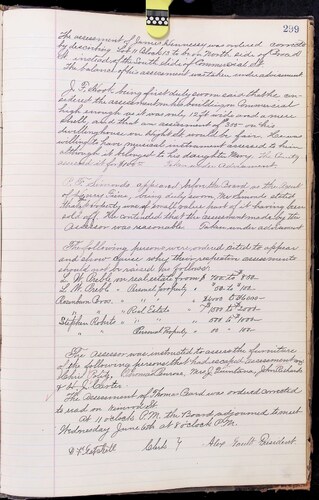 299
The assessment of James Hennessy was ordered corrected
by describing Lot 11 Block 13 to be on North side of
instead of the South side of Commercial St.
The balance of this assessment was taken under advisement
J. F. Hook being first duly sworn said that he con-
sidered the assessment on his building on Commercial
high enough, as it was only 12 ft wide and a mere
shell, and that an assessment of $250 on the
dwelling house on Hight St would be fair. He was
willing to have musical instrument assessed to him
although it belonged to his daughter Mary.
Taken under Advisement.
appeared before the Board as the agent
of Agnes Finn, being duly sworn,
that property was of small value part of it having been
sold off. He contended that the assessment made by the
Assessor was reasonable. Taken under advisement
The following persons were ordered cited to appear
and show cause why their respective assessments
should not be raised as follows:
L. W. on real estate from $700 to 800.
L. W. " Personal Property " 50 to 100.
Bros. " " " $4000 to $6000
" " " Real Estate "
Stephen Roberts " " " 500 to 1000
" " " Personal Property "
The Assessor was instructed to assess the furniture
of the following persons that had escaped assessment
Thomas Burns, Mrs J. John Richards
& H. J.
The assessment of Thomas Beard was ordered corrected
to read on
At 11 o'clock P.M. the Board adjourned to meet
Wednesday June 6th at 8 o'clock P.M.
Clerk Alex Gault President